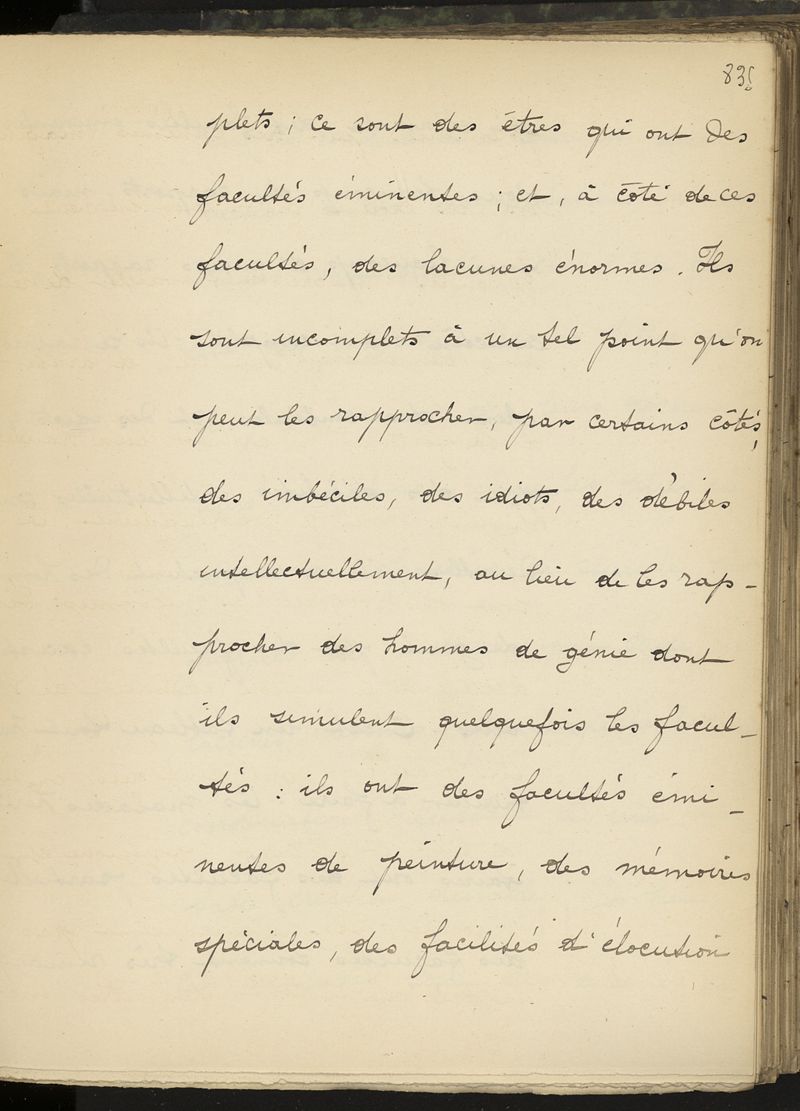 835
plets ; ce sont des êtres qui ont des
facultés éminentes ; et, à côté de ces
facultés, des lacunes énormes. Ils
sont incomplets à un tel point qu'on
peut les rapprocher, par certains côtés,
des imbéciles, des idiots, des débiles
intellectuellement, au lieu de les rap-
procher des hommes de génie dont
ils simulent quelquefois les facul-
tés : ils ont des facultés émi-
nentes de peinture, des mémoires
spéciales, des facilités d'élocution